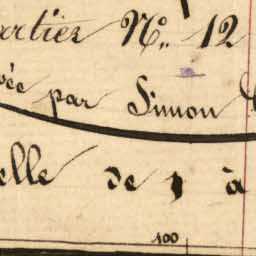 artier N° 12
vée par Simon
elle de 1 à
100